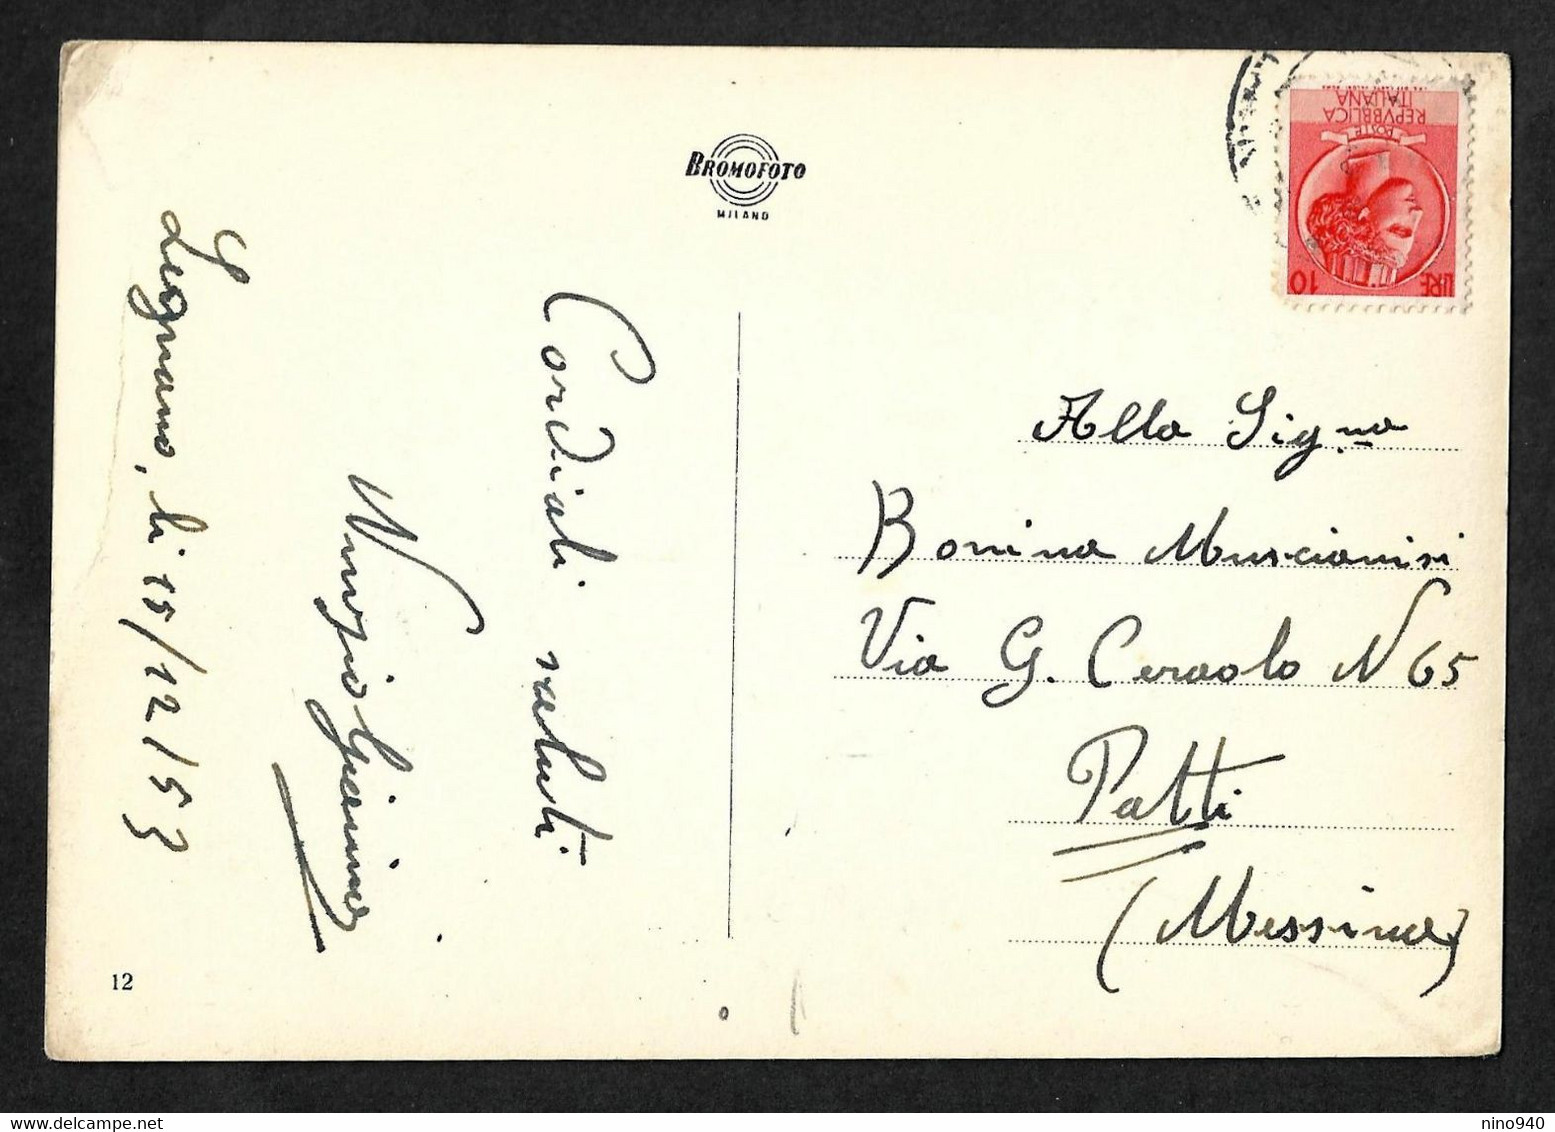 BROMOFOTO
MILANO
LIRE 10
POSTE
REPVBBLICA
ITALIANA
Legnano, li 15/12/53
Cordiali saluti
Nunzio Giarrina
Alla Sig.na
Bonina Muscianisi
Via G. Ceraolo N 65
Patti
(Messina)
12
nino940